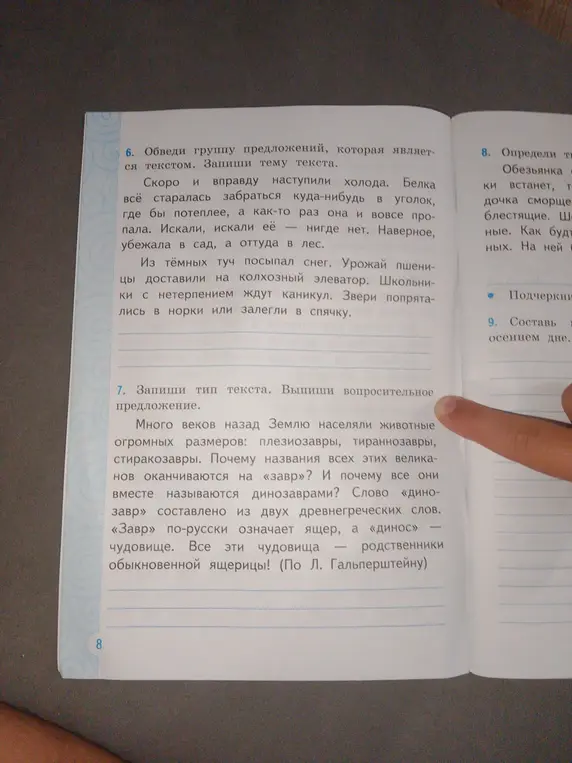 6. Обведи группу предложений, которая являет-
ся текстом. Запиши тему текста.
Скоро и вправду наступили холода. Белка
всё старалась забраться куда-нибудь в уголок,
где бы потеплее, а как-то раз она и вовсе про-
пала. Искали, искали её — нигде нет. Наверное,
убежала в сад, а оттуда в лес.
Из тёмных туч посыпал снег. Урожай пшени-
цы доставили на колхозный элеватор. Школьни-
ки с нетерпением ждут каникул. Звери попрята-
лись в норки или залегли в спячку.
7. Запиши тип текста. Выпиши вопросительное
предложение.
Много веков назад Землю населяли животные
огромных размеров: плезиозавры, тираннозавры,
стиракозавры. Почему названия всех этих велика-
нов оканчиваются на «завр»? И почему все они
вместе называются динозаврами? Слово «дино-
завр» составлено из двух древнегреческих слов.
«Завр» по-русски означает ящер, а «динос» —
чудовище. Все эти чудовища — родственники
обыкновенной ящерицы! (По Л. Гальперштейну)
8
8. Определи
Обезьянка
ки встанет,
дочка сморще
блестящие.
ные. Как буд
ных. На ней
• Подчеркни
9. Составь
осеннем дне.